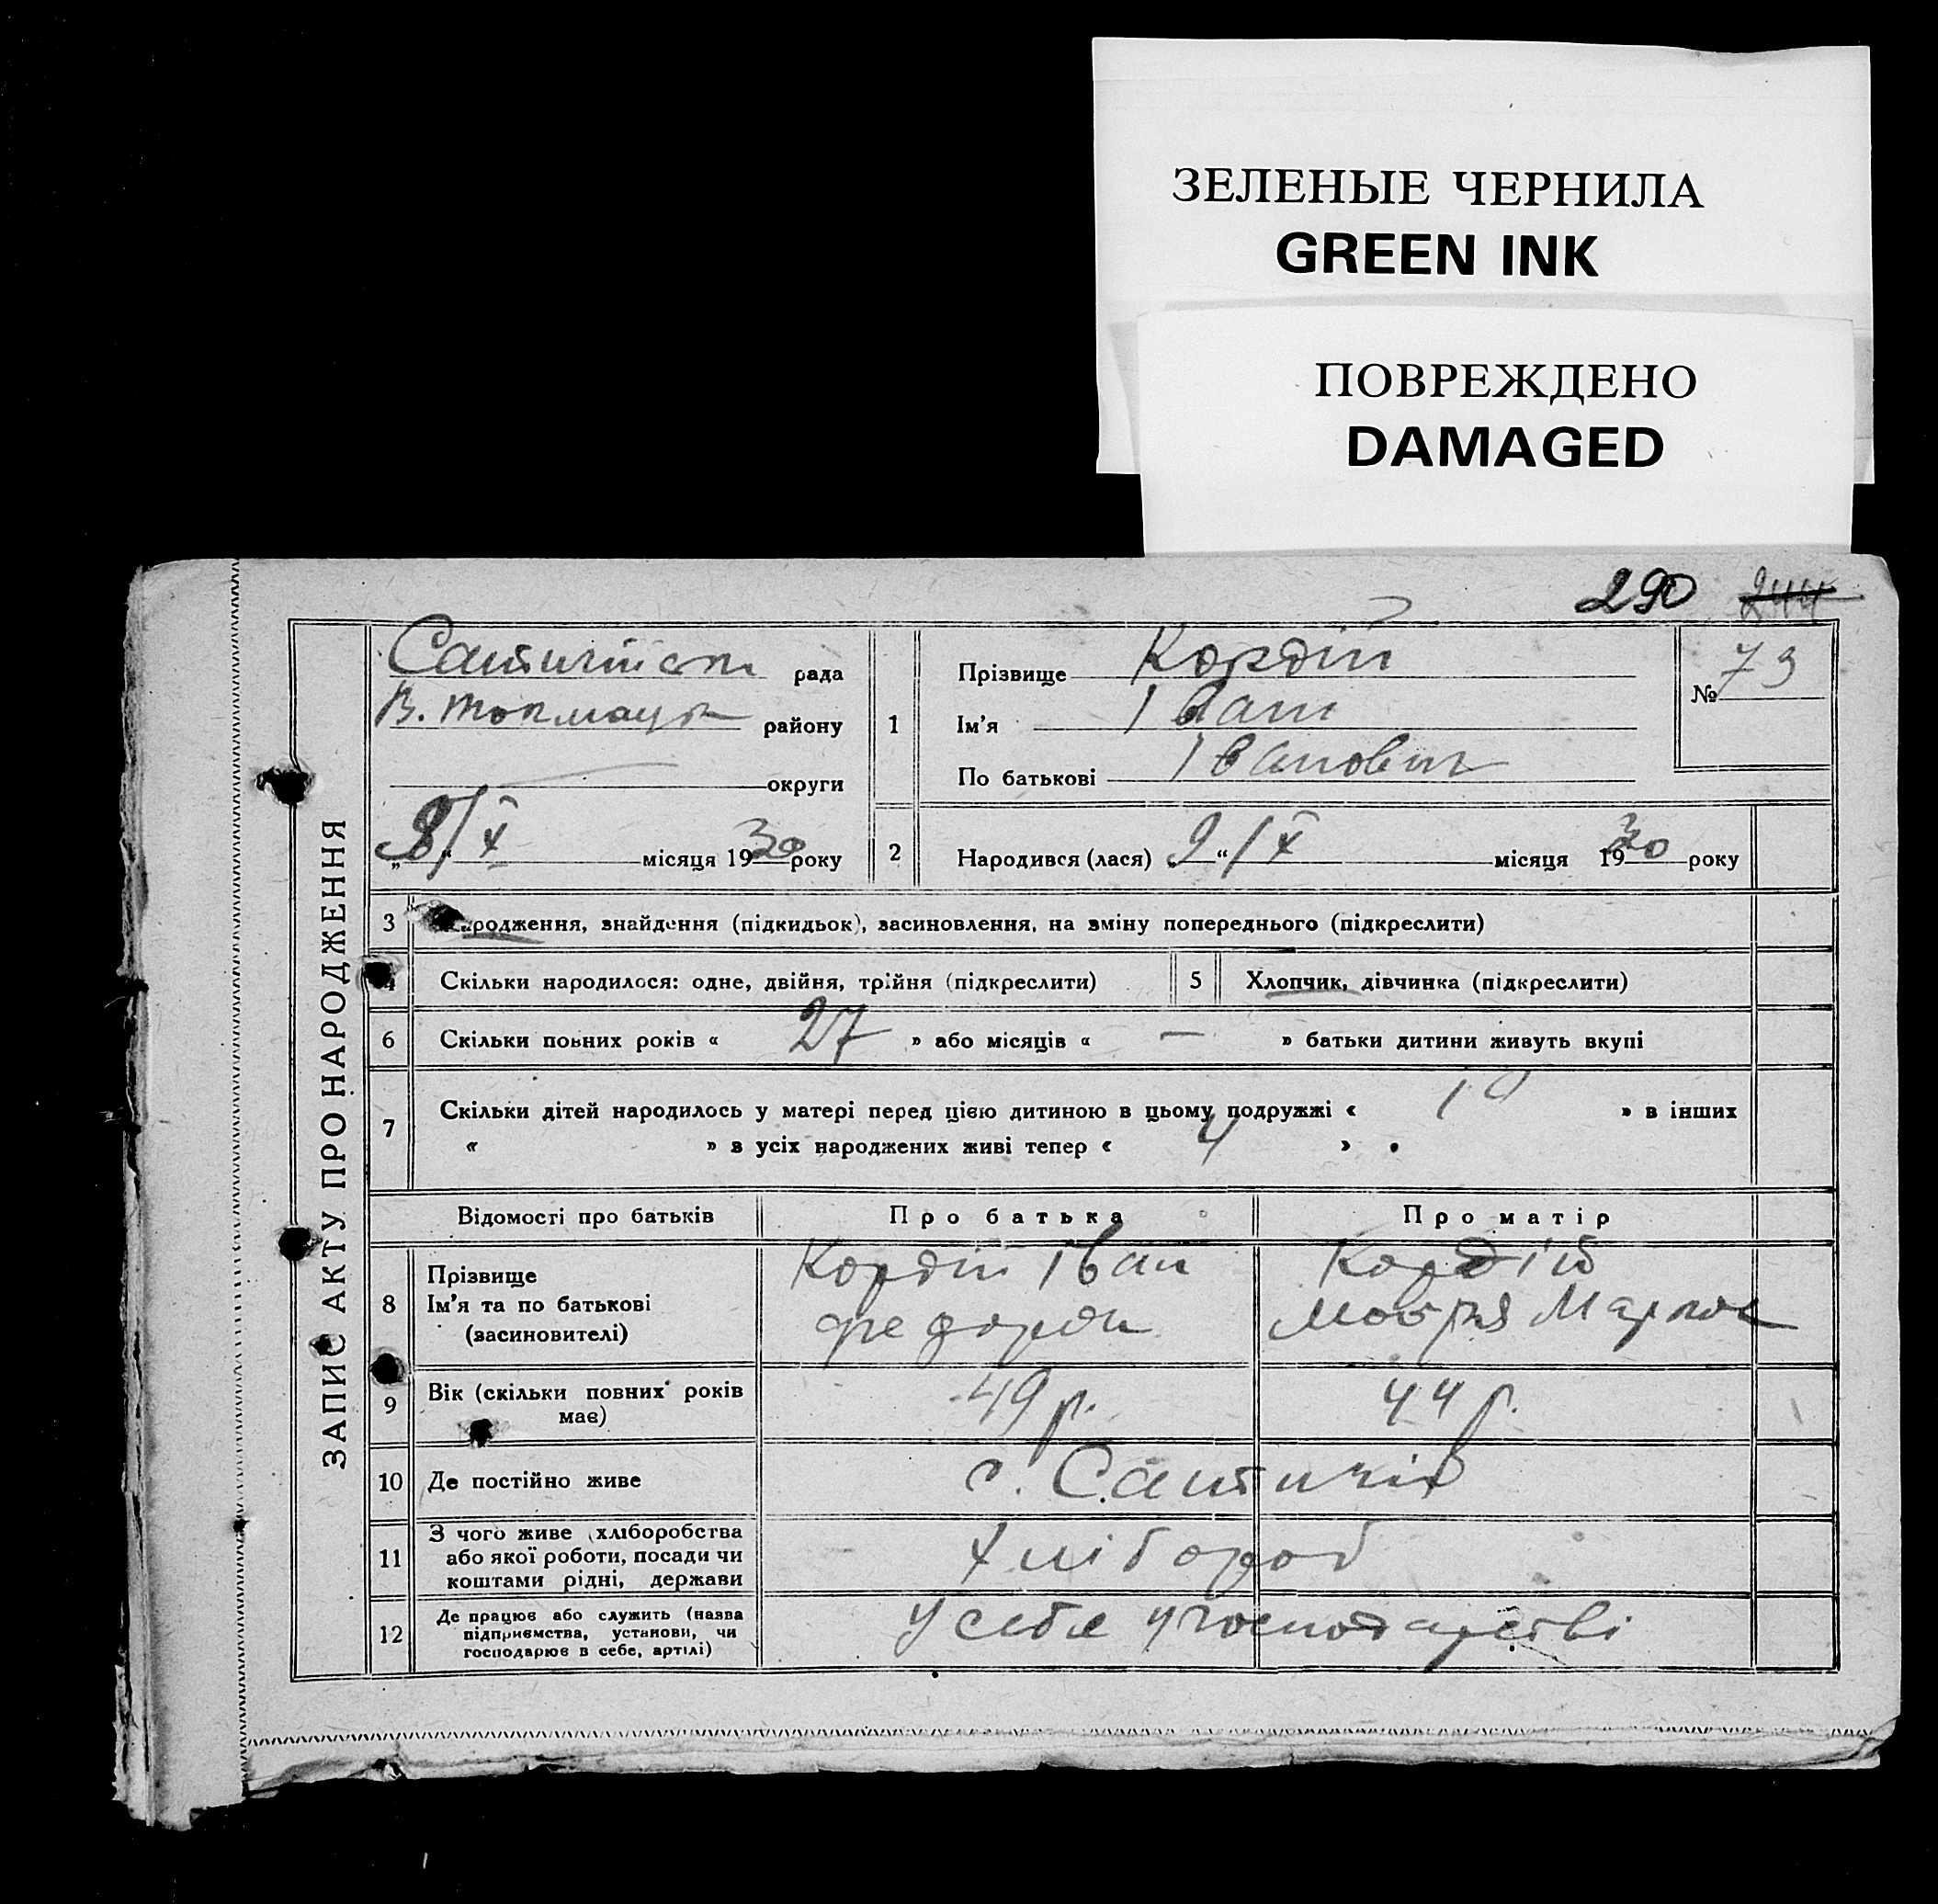 ЗЕЛЕНЫЕ ЧЕРНИЛА
GREEN INK
ПОВРЕЖДЕНО
DAMAGED
290 244
ЗАПИС АКТУ ПРО НАРОДЖЕННЯ
рада
В. Токмацьк району
округи
8/X місяця 1930 року
1
Прізвище Кордій
Ім'я Іван
По батькові Іванович
№ 73
2 Народився (лася) „2“/X місяця 1930 року
3 народження, знайдення (підкидьок), засиновлення, на зміну попереднього (підкреслити)
4 Скільки народилося: одне, двійня, трійня (підкреслити)
5 Хлопчик, дівчинка (підкреслити)
6 Скільки повних років « 27 » або місяців « — » батьки дитини живуть вкупі
7 Скільки дітей народилось у матері перед цією дитиною в цьому подружжі « 10 » в інших
« » в усіх народжених живі тепер « 4 » .
Відомості про батьків Про батька Про матір
8 Прізвище Кордій Іван Кордій
Ім'я та по батькові Федоров Марк
(засиновителі)
9 Вік (скільки повних років 49 р. 44 р.
має)
10 Де постійно живе с.
11 З чого живе (хліборобства
або якої роботи, посади чи Хлібороб
коштами рідні, держави
12 Де працює або служить (назва У себе у господарстві
підприємства, установи, чи
господарює в себе, артілі)